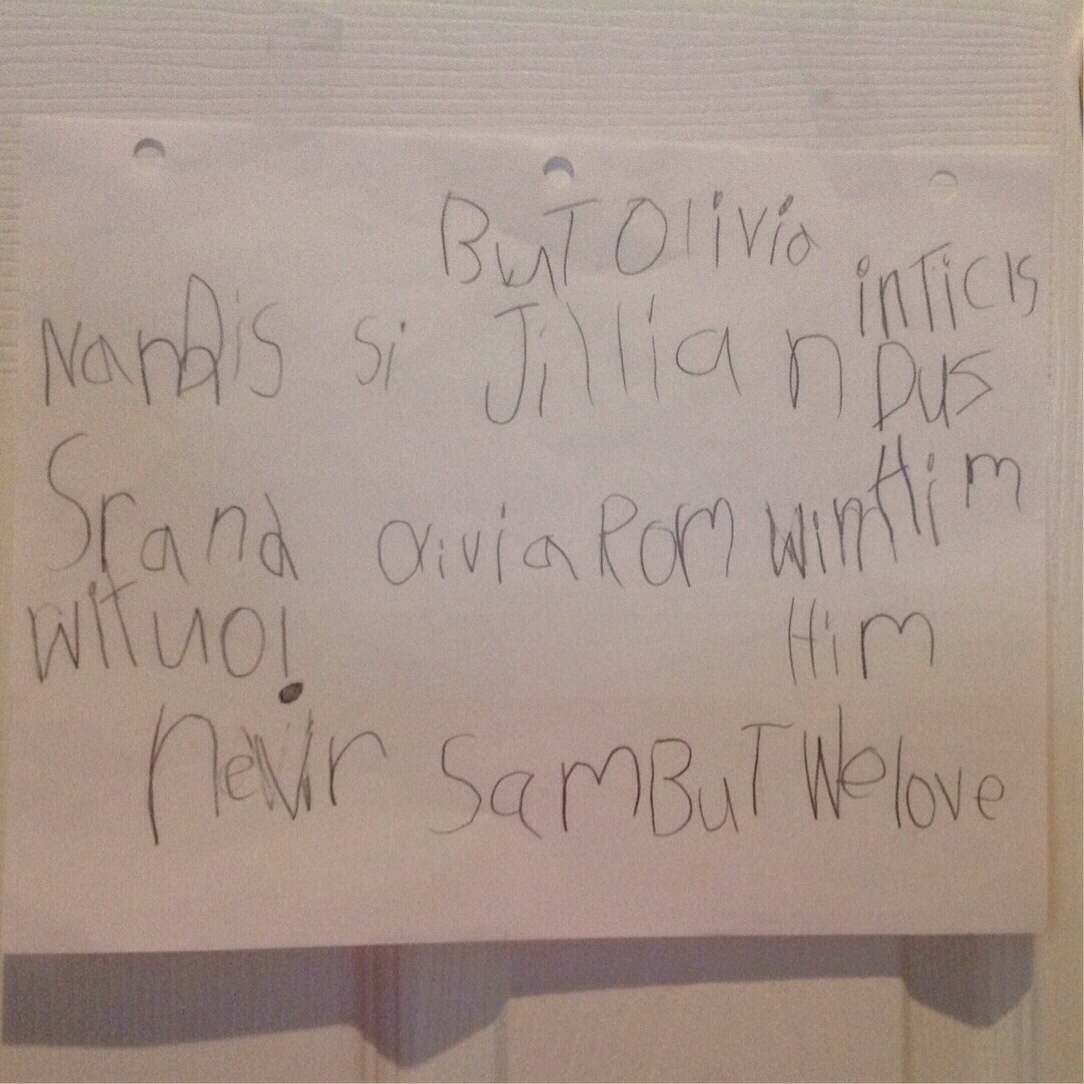 BuT Olivia
inTicIs
NanDis si Jillian Dus
Srand Olivia Rom wim Him
wituo! Him
Nevir Sam BuT We love